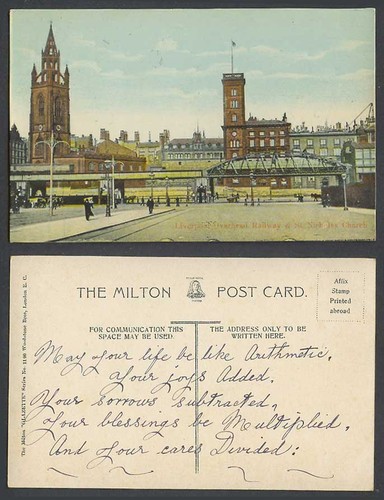 Liverpool Overhead Railway & St. Nich Jas Church
THE MILTON POST CARD.
Affix
Stamp
Printed
abroad
FOR COMMUNICATION THIS
SPACE MAY BE USED.
THE ADDRESS ONLY TO BE
WRITTEN HERE.
The Milton "GLAZETTE" Series No. 1146 Woolstone Bros, London E. C.
May your life be like Arithmetic,
Your joys Added,
Your sorrows subtracted,
Your blessings be Multiplied,
And your cares Divided: